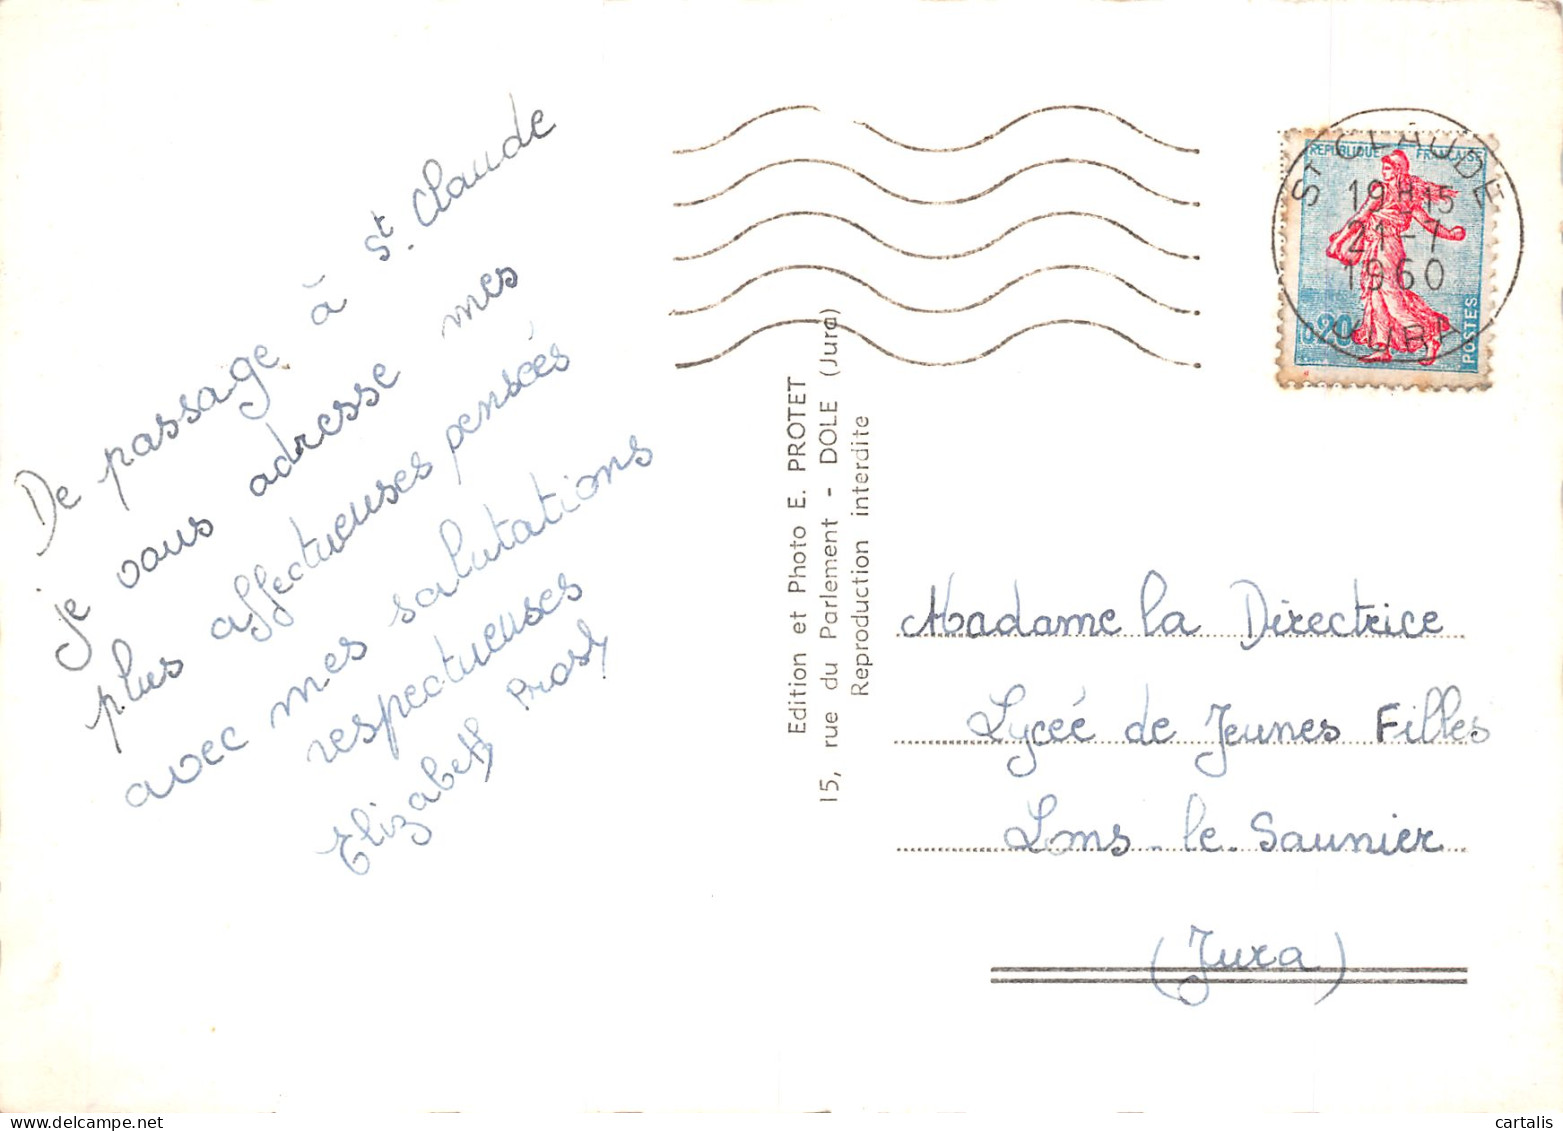 De passage à St. Claude
je vous adresse mes
plus affectueuses pensées
avec mes salutations
respectueuses
Elizabeth Prost
Edition et Photo E. PROTET
15, rue du Parlement - DOLE (Jura)
Reproduction interdite
ST CLAUDE
19H15
21-7
1960
JURA
REPUBLIQUE FRANCAISE
0,20
POSTES
Madame la Directrice
Lycée de Jeunes Filles
Lons-le-Saunier
(Jura)
cartalis